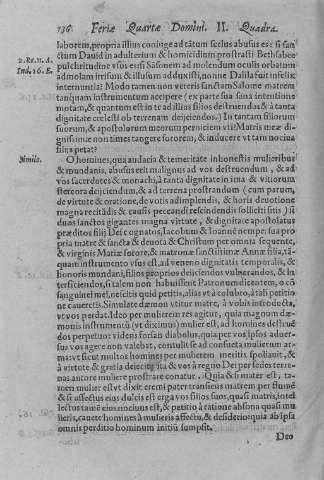 136 Feriæ Quartæ Domini. II. Quadra.
laborem, propria illius coninge ad tatum scelus abusus es: si san
ctum Dauid in adulterium & homicidium prostrasti Bethsabee
2. Re. 11. A. pulchritudine vsus es: si Salomonem ad molendum oculis orbatum
Iud. 16. E. admolam irrisum & illusum adduxisti, nonne Dalila fuit infelix
internuntia? Modo tamen non vereris sanctam Salome matrem
tanquam instrumentum accipere (ex parte sua sana intentione
motam, & quantum est in te ad illius filios destruendas & à tanta
dignitate cœlesti ob terrenam deijciendos.) In tantam filiorum
suorum, & apostolorum meorum perniciem vti? Matris meæ di-
gnissimæ non times tangere sororem, & inducere vt tam nociua
filijs petat?
Nimilo. O homines, qua audacia & temeritate inhonestis mulieribus
& mundanis, abusus erit malignus ad vos destruendum, & ad
vos sacerdotes & monachi, à tanta dignitate in ima & vitiorum
stercora deijciendum, & ad terrena prostrandum (cum parum,
de virtute & oratione, de votis adimplendis, & horis deuotione
magna recitādis & causis peccandi rescindendis solliciti sitis) si
duas sanctos gigantes magna virtute, & dignitate apostolatus
præditos filij Dei cognatos, Iacobum & Ioannē nempe: sua pro
pria matre & sancta & deuota & Christum per omnia sequente,
& virginis Mariæ sorore, & matronæ sanctissimæ Annæ filia, tā-
quam instrumento vsus est, ad venenū dignitatis temporalis, &
honoris mundani, filijs proprios deliciendos vulnerandos, & in-
terficiendos, si talem non habuissent Patronum dicentem, o cō
sanguinei mei, nescitis quid petitis, alias vt à colubro, à tali petitio
ne caueretis. Simulate dæmon vtitur matre, à vobis instructa,
vt vos perdat. Ideo per mulierem res agitur, quia magnum dæ-
monis instrumentū (vt diximus) mulier est, ad homines destruē
dos perpetuo: videns forsan diabolus, quia per vos ipsos aduer-
sus vos agere non valebat, contulit se ad consueta mulierum ar-
ma: vt sicut multos homines per mulierem meritis spoliauit, &
à virtute & gratia deiecit, ita & vos à regno Dei per sedes terre-
nas autore muliere prostrare conatur. Quia & si mater est, ta-
men mulier est vt dixit eremi pater transiens matrem per flumē
& si affectus eius dulcis est erga vos filios suos, quasi matris, intel
lectus tamē eius nociuus est, & petitio à ratione absona quasi mu
lieris, cauete homines à mulieris affectu, & desiderio: quia ab ipsa
omnis perditio hominum initiū sumpsit.
Deo